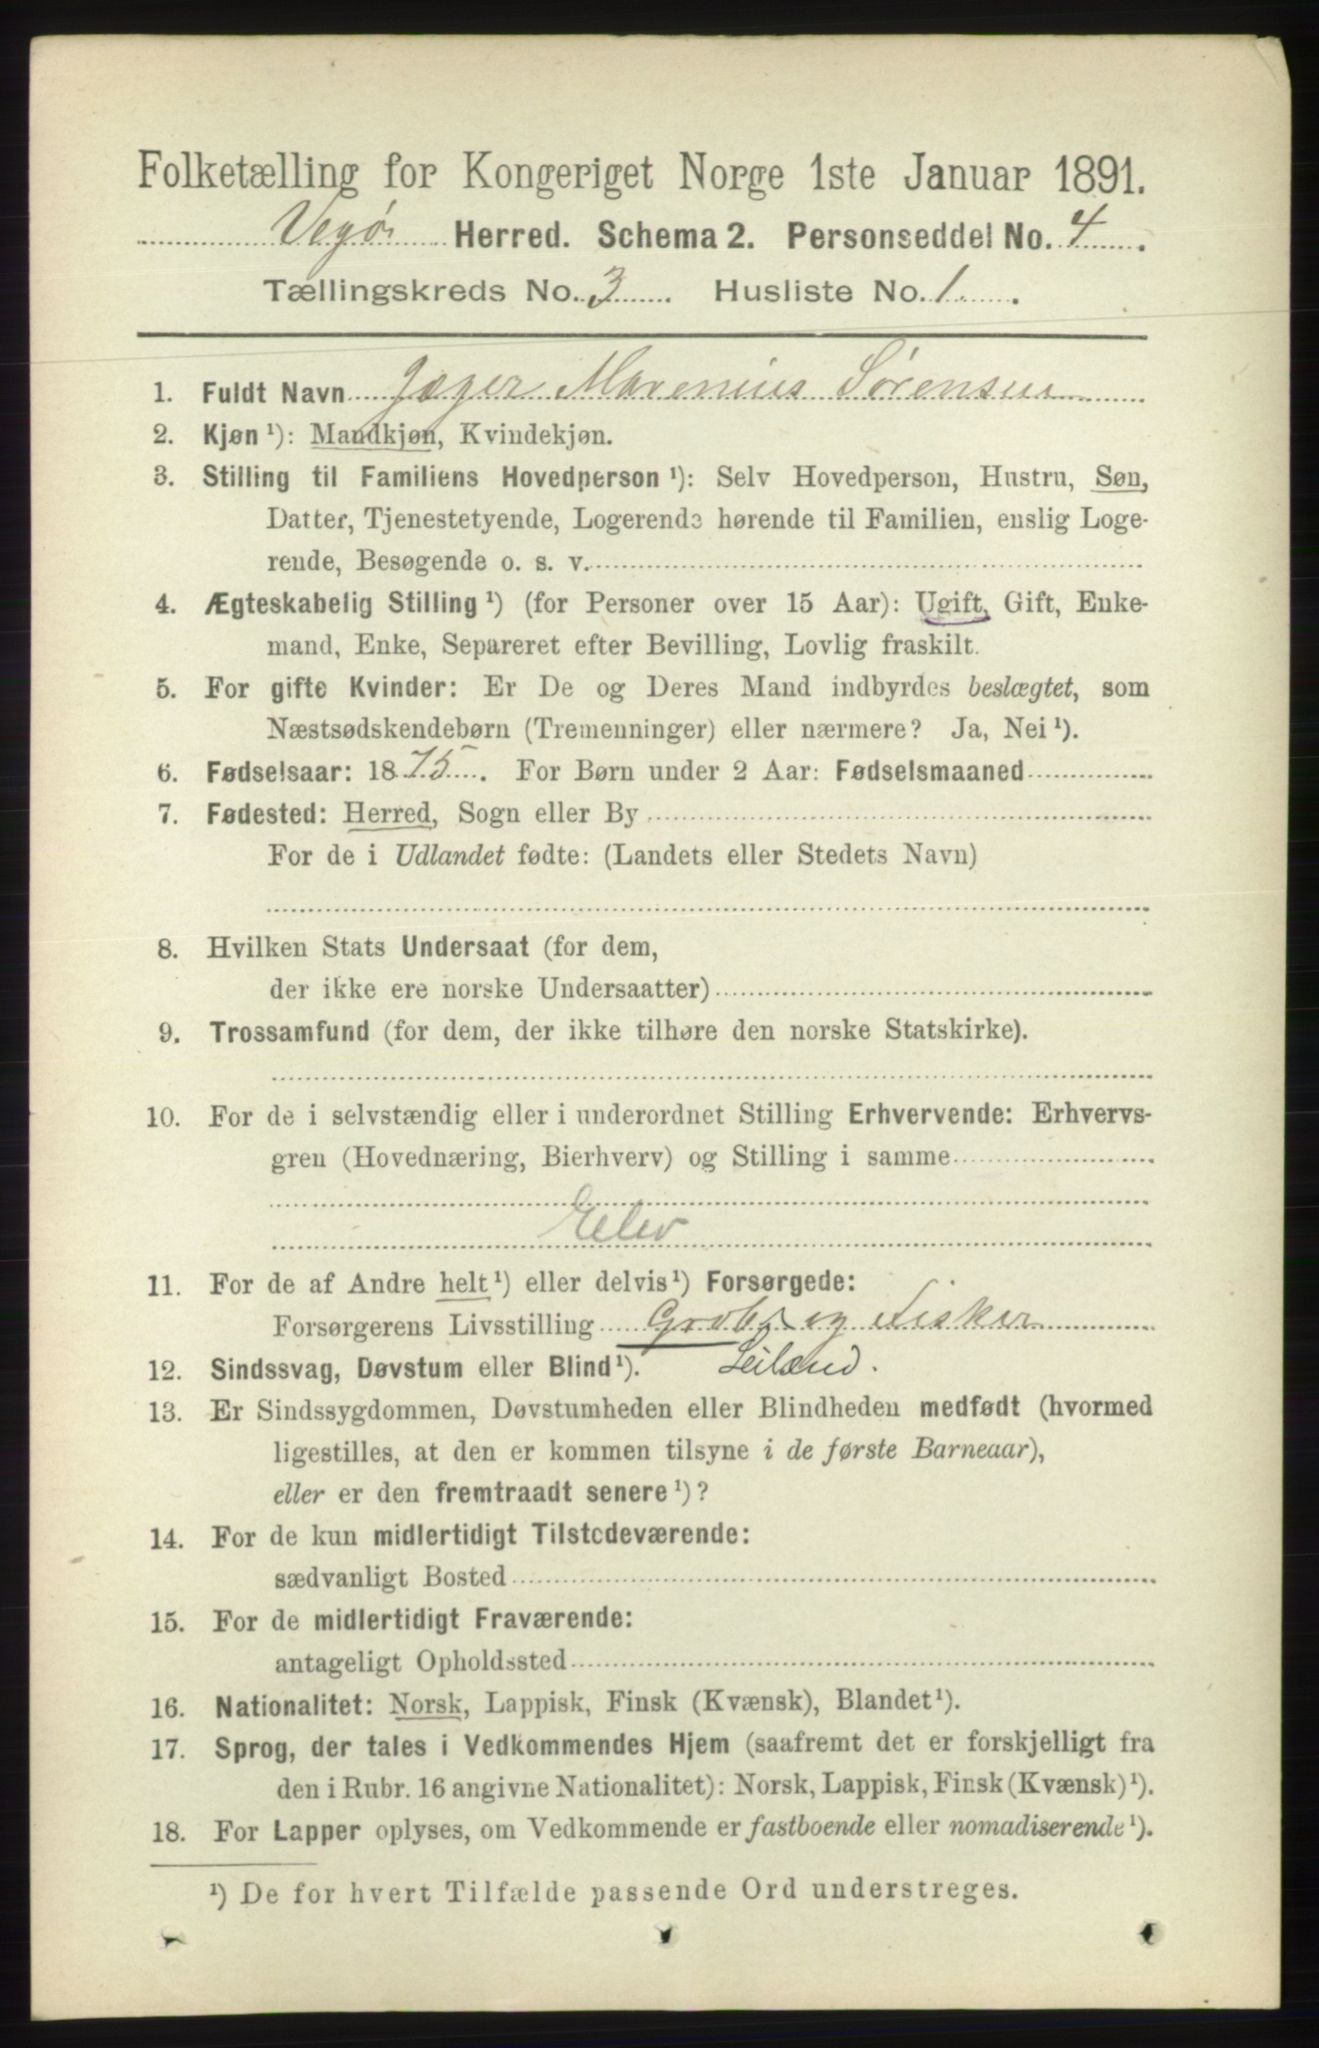 Folketælling for Kongeriget Norge 1ste Januar 1891.
Vegø Herred. Schema 2. Personseddel No. 4.
Tællingskreds No. 3. Husliste No. 1.
1. Fuldt Navn Jæger Marenius Sørensen
2. Kjøn ¹): Mandkjøn, Kvindekjøn.
3. Stilling til Familiens Hovedperson ¹): Selv Hovedperson, Hustru, Søn,
Datter, Tjenestetyende, Logerende hørende til Familien, enslig Loge-
rende, Besøgende o. s. v.
4. Ægteskabelig Stilling ¹) (for Personer over 15 Aar): Ugift, Gift, Enke-
mand, Enke, Separeret efter Bevilling, Lovlig fraskilt.
5. For gifte Kvinder: Er De og Deres Mand indbyrdes beslægtet, som
Næstsødskendebørn (Tremenninger) eller nærmere? Ja, Nei ¹).
6. Fødselsaar: 1875. For Børn under 2 Aar: Fødselsmaaned
7. Fødested: Herred, Sogn eller By
For de i Udlandet fødte: (Landets eller Stedets Navn)
8. Hvilken Stats Undersaat (for dem,
der ikke ere norske Undersaatter)
9. Trossamfund (for dem, der ikke tilhøre den norske Statskirke).
10. For de i selvstændig eller i underordnet Stilling Erhvervende: Erhvervs-
gren (Hovednæring, Bierhverv) og Stilling i samme
Elev
11. For de af Andre helt ¹) eller delvis ¹) Forsørgede:
Forsørgerens Livsstilling og Fisker
12. Sindssvag, Døvstum eller Blind ¹). Leilænd.
13. Er Sindssygdommen, Døvstumheden eller Blindheden medfødt (hvormed
ligestilles, at den er kommen tilsyne i de første Barneaar),
eller er den fremtraadt senere ¹)?
14. For de kun midlertidigt Tilstedeværende:
sædvanligt Bosted
15. For de midlertidigt Fraværende:
antageligt Opholdssted
16. Nationalitet: Norsk, Lappisk, Finsk (Kvænsk), Blandet ¹).
17. Sprog, der tales i Vedkommendes Hjem (saafremt det er forskjelligt fra
den i Rubr. 16 angivne Nationalitet): Norsk, Lappisk, Finsk (Kvænsk) ¹).
18. For Lapper oplyses, om Vedkommende er fastboende eller nomadiserende ¹).
¹) De for hvert Tilfælde passende Ord understreges.